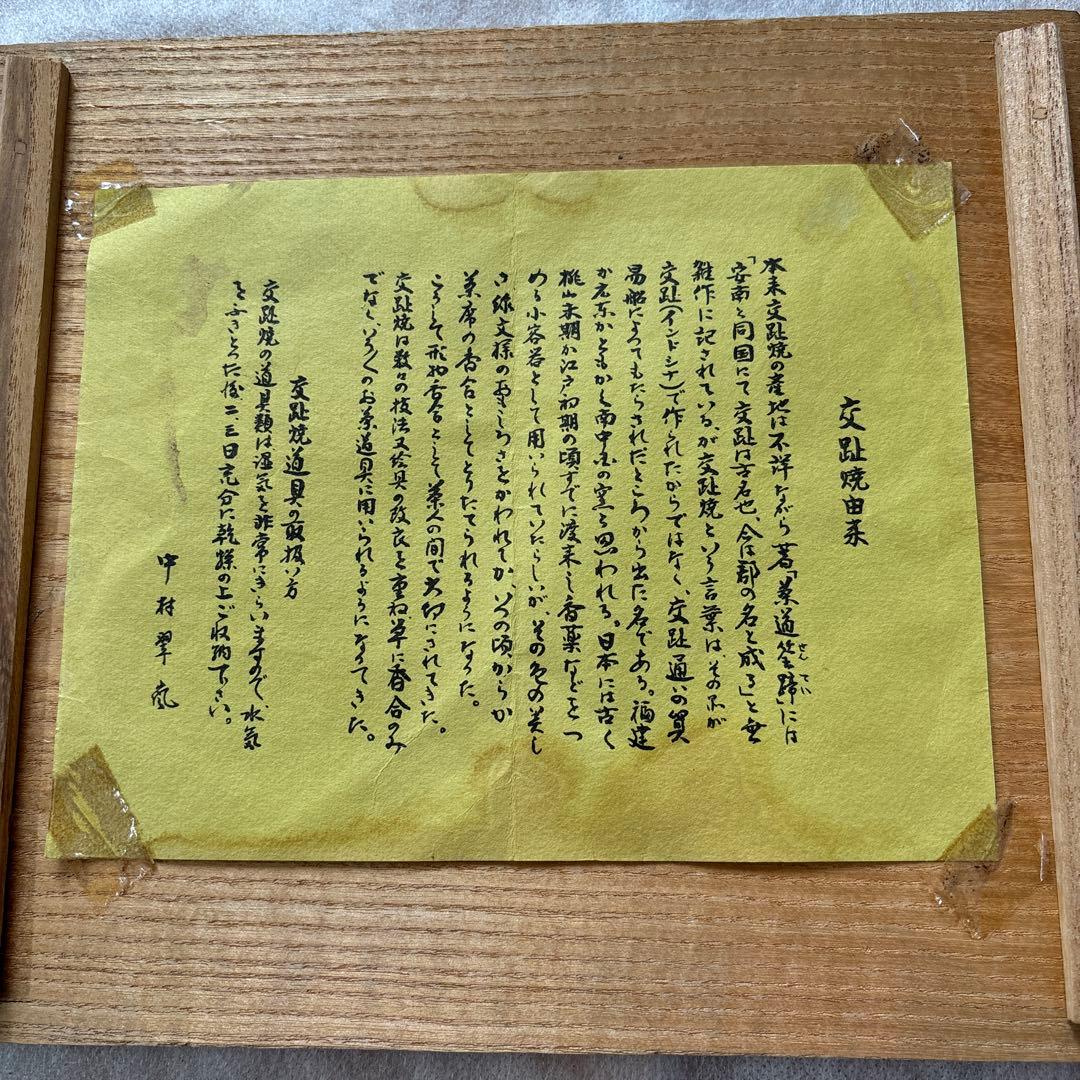 交趾焼由来
本来交趾焼の産地は不詳ながら著「茶道筌蹄」には
せんてい
「安南と同国にて交趾は古名也、今は郡の名と成る」と無
雑作に記されている、が交趾焼という言葉はその不が
交趾(インドシナ)で作られたからではなく、交趾通いの貿
易船によってもたらされたところから出た名である。福建
か広東かともかく南中国の窯と思われる。日本には古く
桃山末期か江戸初期の頃すでに渡来し香薬などをつ
める小容器として用いられていたらしいが、その色の美し
さ、線文様のおもしろさをかわれてか、いつの頃からか
茶席の香合としてとりたてられるようになった。
こうして形物香合として茶人の間で大切にされてきた。
交趾焼は数々の技法又絵具の改良を重ね単に香合のみ
でなく、いろ〱のお茶道具に用いられるようになってきた。
交趾焼道具の取扱い方
交趾焼の道具類は湿気を非常にきらいますので、水気
をふきとった後二、三日充分に乾燥の上ご収納下さい。
中村翠嵐